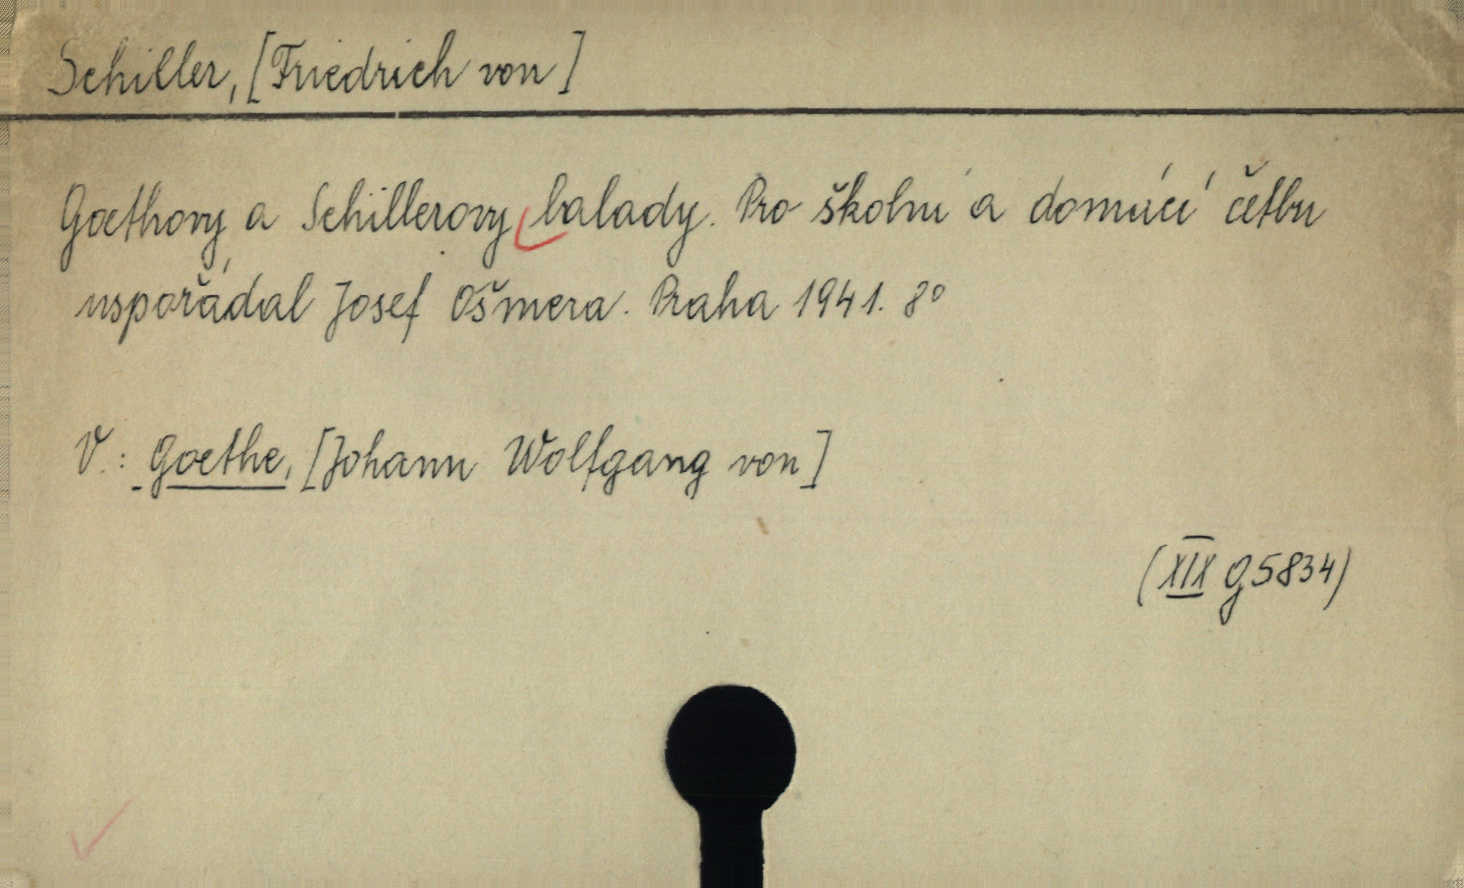 Schiller, [Friedrich von]
Goethovy a Schillerovy balady. Pro školní a domácí četbu
uspořádal Josef Ošmera. Praha 1941. 8°
V.: Goethe, [Johann Wolfgang von]
(XIX g 5834)